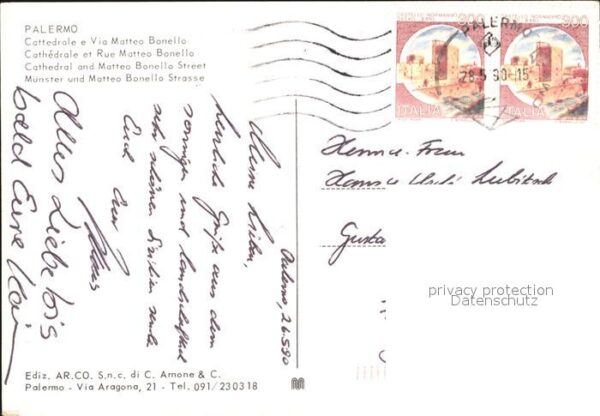 PALERMO
Cattedrale e Via Matteo Bonello
Cathédrale et Rue Matteo Bonello
Cathedral and Matteo Bonello Street
Münster und Matteo Bonello Strasse
Palermo, 26.5.90
Meine Lieben,
herzliche Grüße aus dem
sonnigen und landschaftlich
sehr schönen Sizilien sendet
Euch
Euer
Klaus
Alles Liebe bis
bald Eure
Ediz. AR.CO. S.n.c. di C. Arnone & C.
Palermo - Via Aragona, 21 - Tel. 091/230318
CASTELLO NORMANNO
300
ITALIA
300
ITALIA
PALERMO
28.5.90-15
Frau
Gusta
privacy protection
Datenschutz